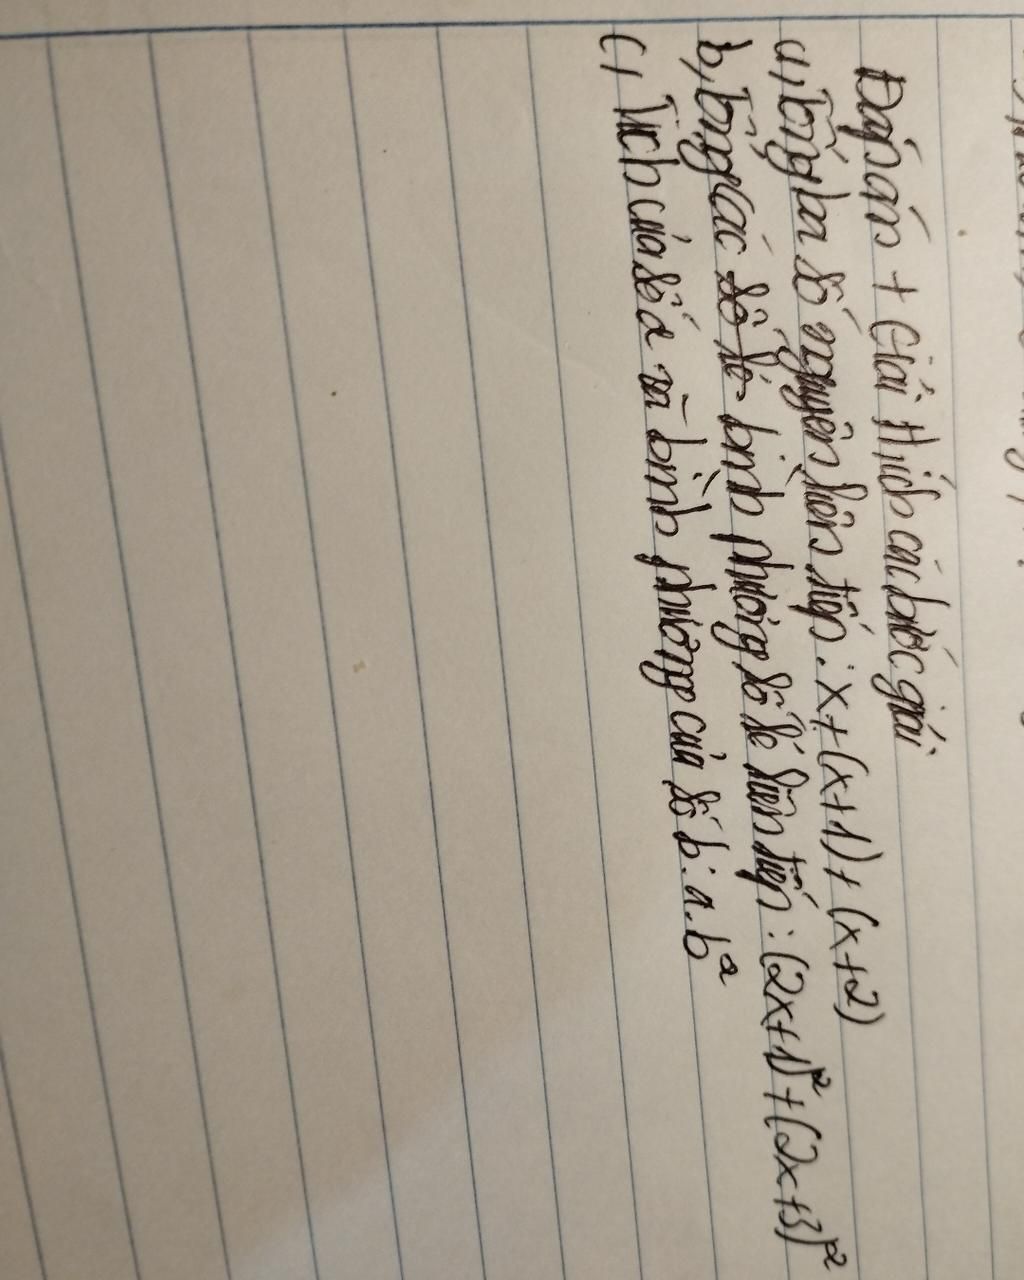 Đáp án + Giải thích các bước giải
a, Tổng ba số nguyên liên tiếp : x + (x+1) + (x+2)
b, Tổng các bình phương số lẻ liên tiếp : (2x+1)² + (2x+3)²
c, Tích của số a và bình phương của số b : a.b²